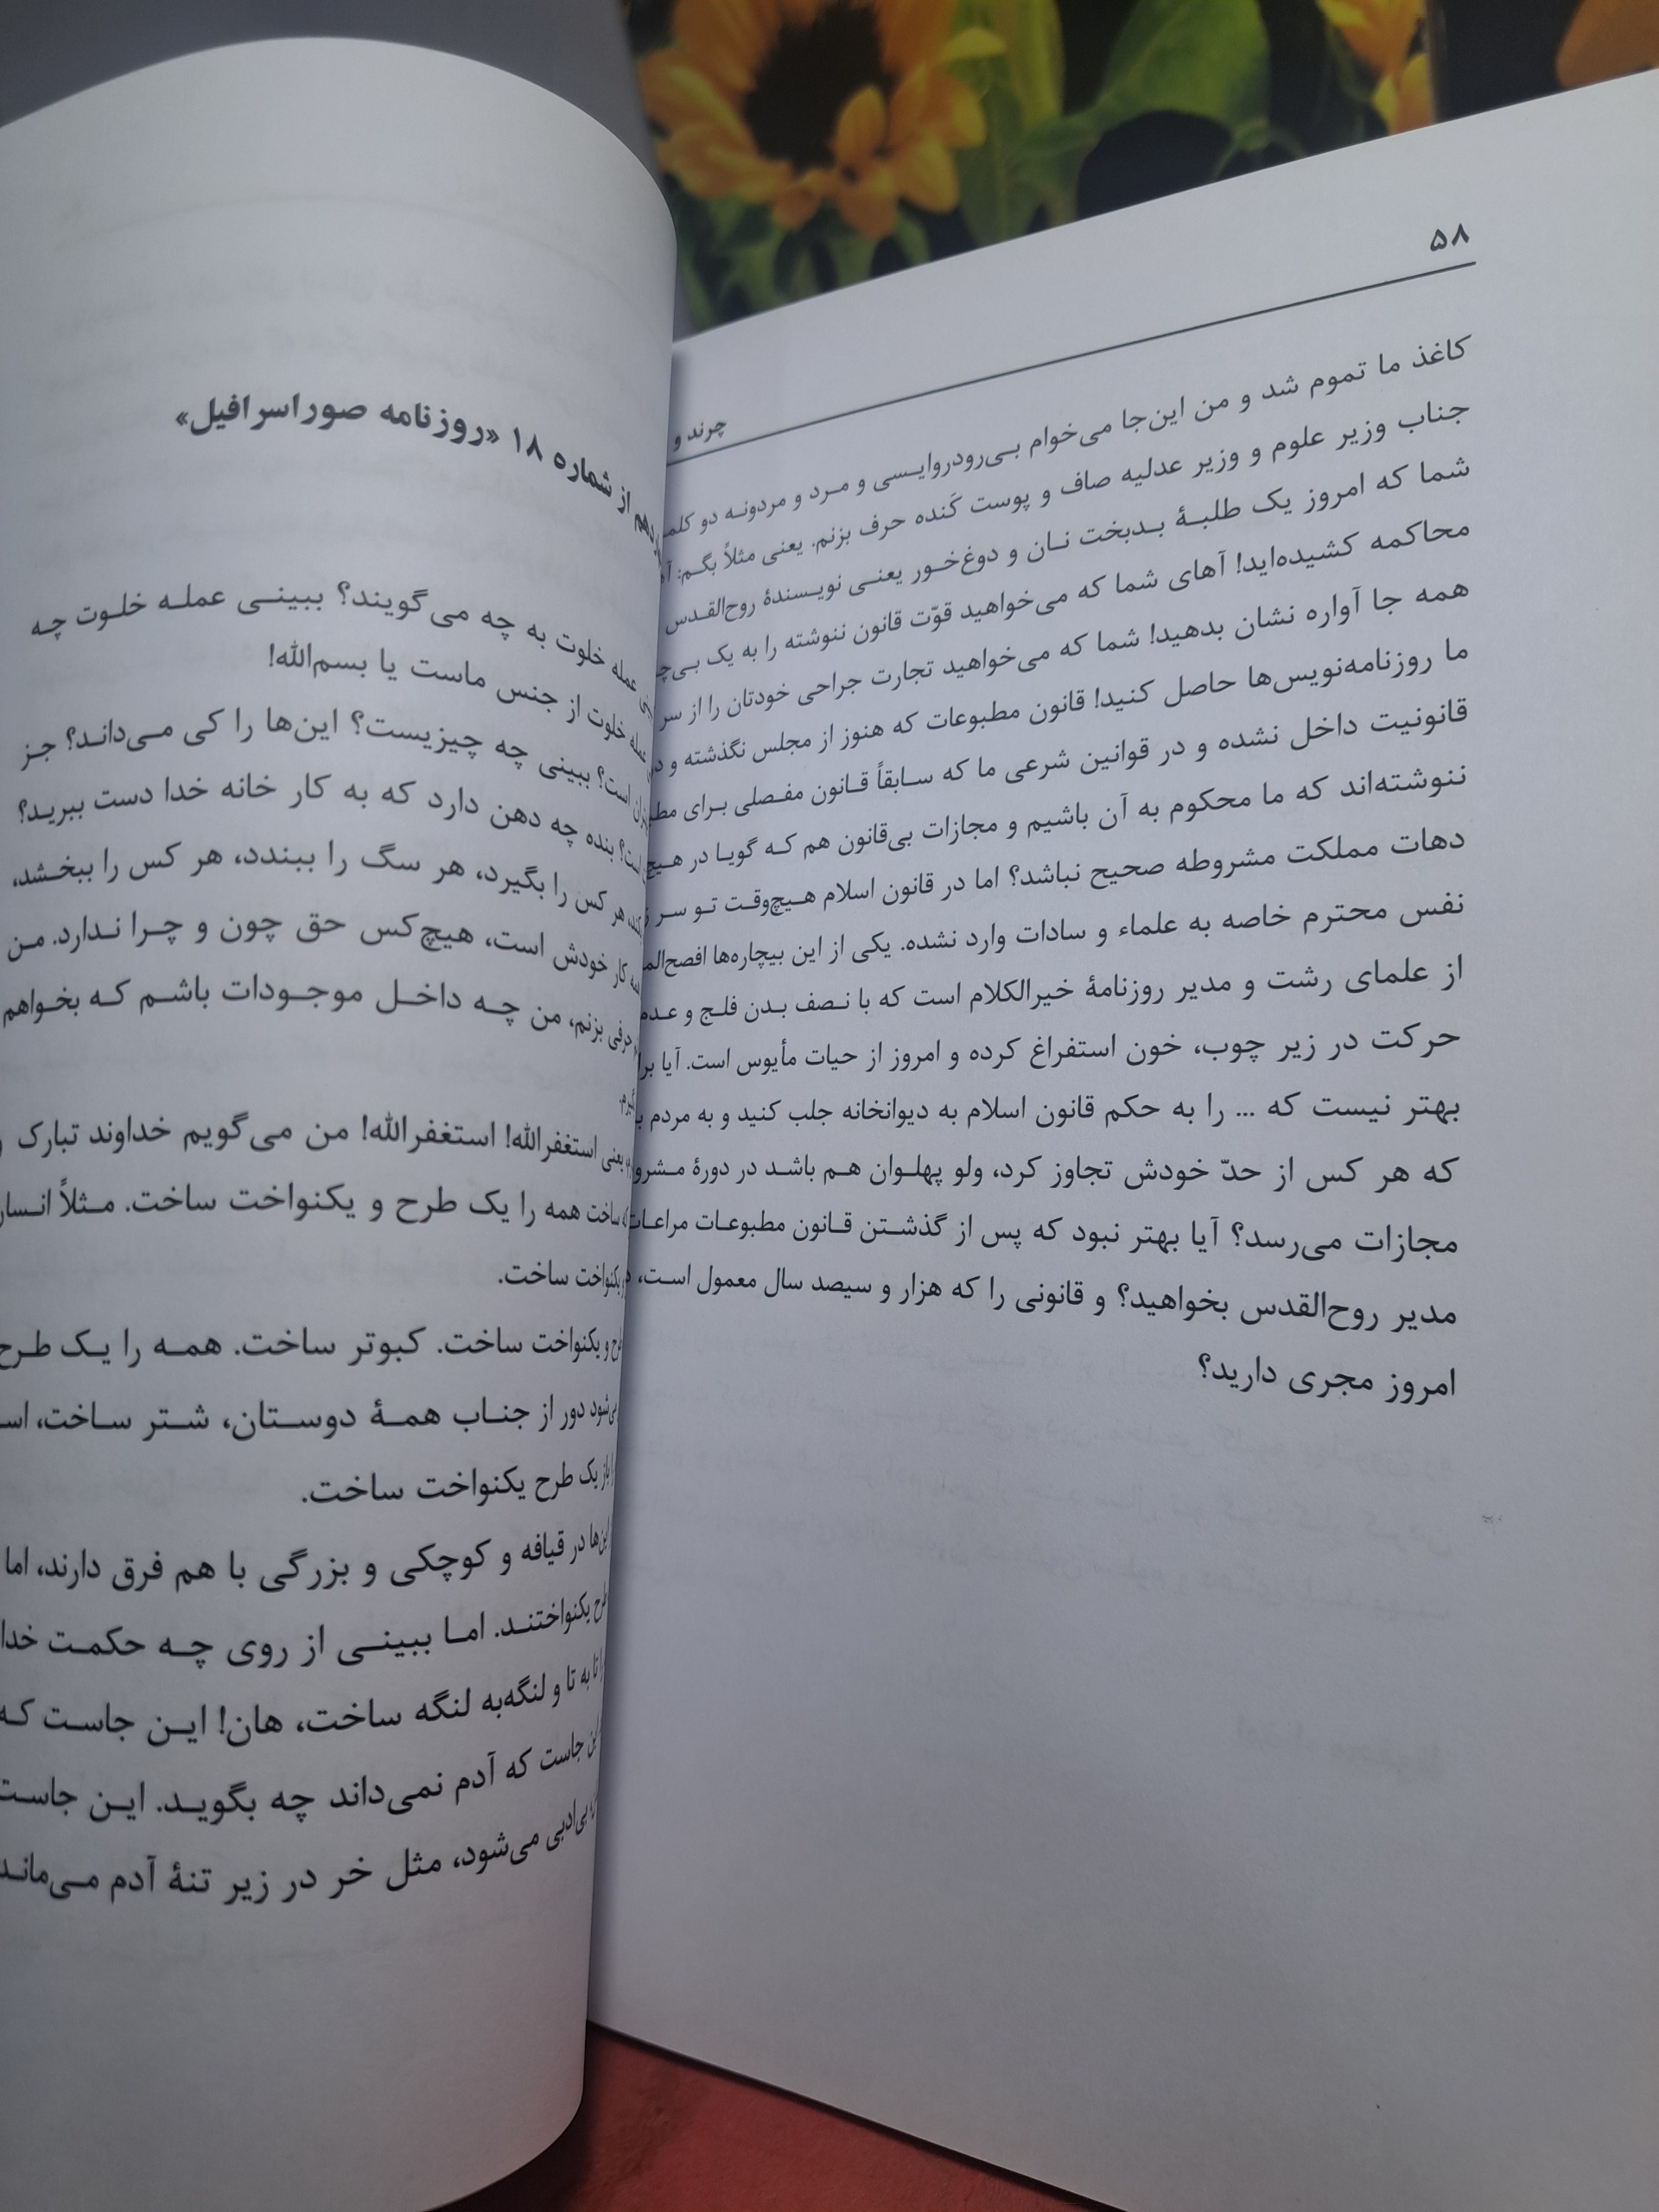 ۵۸
چرند و
کاغذ ما تموم شد و من این‌جا می‌خوام بی‌رودروایسی و مرد و مردونه دو
جناب وزیر علوم و وزیر عدلیه صاف و پوست کَنده حرف بزنم. یعنی مثلاً بگم:
شما که امروز یک طلبهٔ بدبخت نان و دوغ‌خور یعنی نویسندهٔ روح‌القدس
محاکمه کشیده‌اید! آهای شما که می‌خواهید قوّت قانون ننوشته را به یک
همه جا آواره نشان بدهید! شما که می‌خواهید تجارت جراحی خودتان را از سر
ما روزنامه‌نویس‌ها حاصل کنید! قانون مطبوعات که هنوز از مجلس نگذشته و
قانونیت داخل نشده و در قوانین شرعی ما که سابقاً قانون مفصلی برای
ننوشته‌اند که ما محکوم به آن باشیم و مجازات بی‌قانون هم که گویا در هیچ
دهات مملکت مشروطه صحیح نباشد؟ اما در قانون اسلام هیچ‌وقت تو سر
نفس محترم خاصه به علماء و سادات وارد نشده. یکی از این بیچاره‌ها
از علمای رشت و مدیر روزنامهٔ خیرالکلام است که با نصف بدن فلج و
حرکت در زیر چوب، خون استفراغ کرده و امروز از حیات مأیوس است. آیا
بهتر نیست که ... را به حکم قانون اسلام به دیوانخانه جلب کنید و به مردم
که هر کس از حدّ خودش تجاوز کرد، ولو پهلوان هم باشد در دورهٔ
مجازات می‌رسد؟ آیا بهتر نبود که پس از گذشتن قانون مطبوعات
مدیر روح‌القدس بخواهید؟ و قانونی را که هزار و سیصد سال معمول است،
امروز مجری دارید؟
از شماره ۱۸ «روزنامه صوراسرافیل»
عمله خلوت به چه می‌گویند؟ ببینی عمله خلوت چه
خلوت از جنس ماست یا بسم‌الله!
است؟ ببینی چه چیزیست؟ این‌ها را کی می‌داند؟ جز
است؟ بنده چه دهن دارد که به کار خانه خدا دست ببرید؟
هر کس را بگیرد، هر سگ را ببندد، هر کس را ببخشد،
کار خودش است، هیچ‌کس حق چون و چرا ندارد. من
حرفی بزنم، من چه داخل موجودات باشم که بخواهم
یعنی استغفرالله! استغفرالله! من می‌گویم خداوند تبارک
ساخت همه را یک طرح و یکنواخت ساخت. مثلاً
یکنواخت ساخت.
و یکنواخت ساخت. کبوتر ساخت. همه را یک طرح
دور از جناب همهٔ دوستان، شتر ساخت،
باز یک طرح یکنواخت ساخت.
این‌ها در قیافه و کوچکی و بزرگی با هم فرق دارند، اما
طرح یکنواختند. اما ببینی از روی چه حکمت خدا
تا به تا و لنگه‌به لنگه ساخت، هان! این جاست که
جاست که آدم نمی‌داند چه بگوید. این جاست
بی‌ادبی می‌شود، مثل خر در زیر تنهٔ آدم